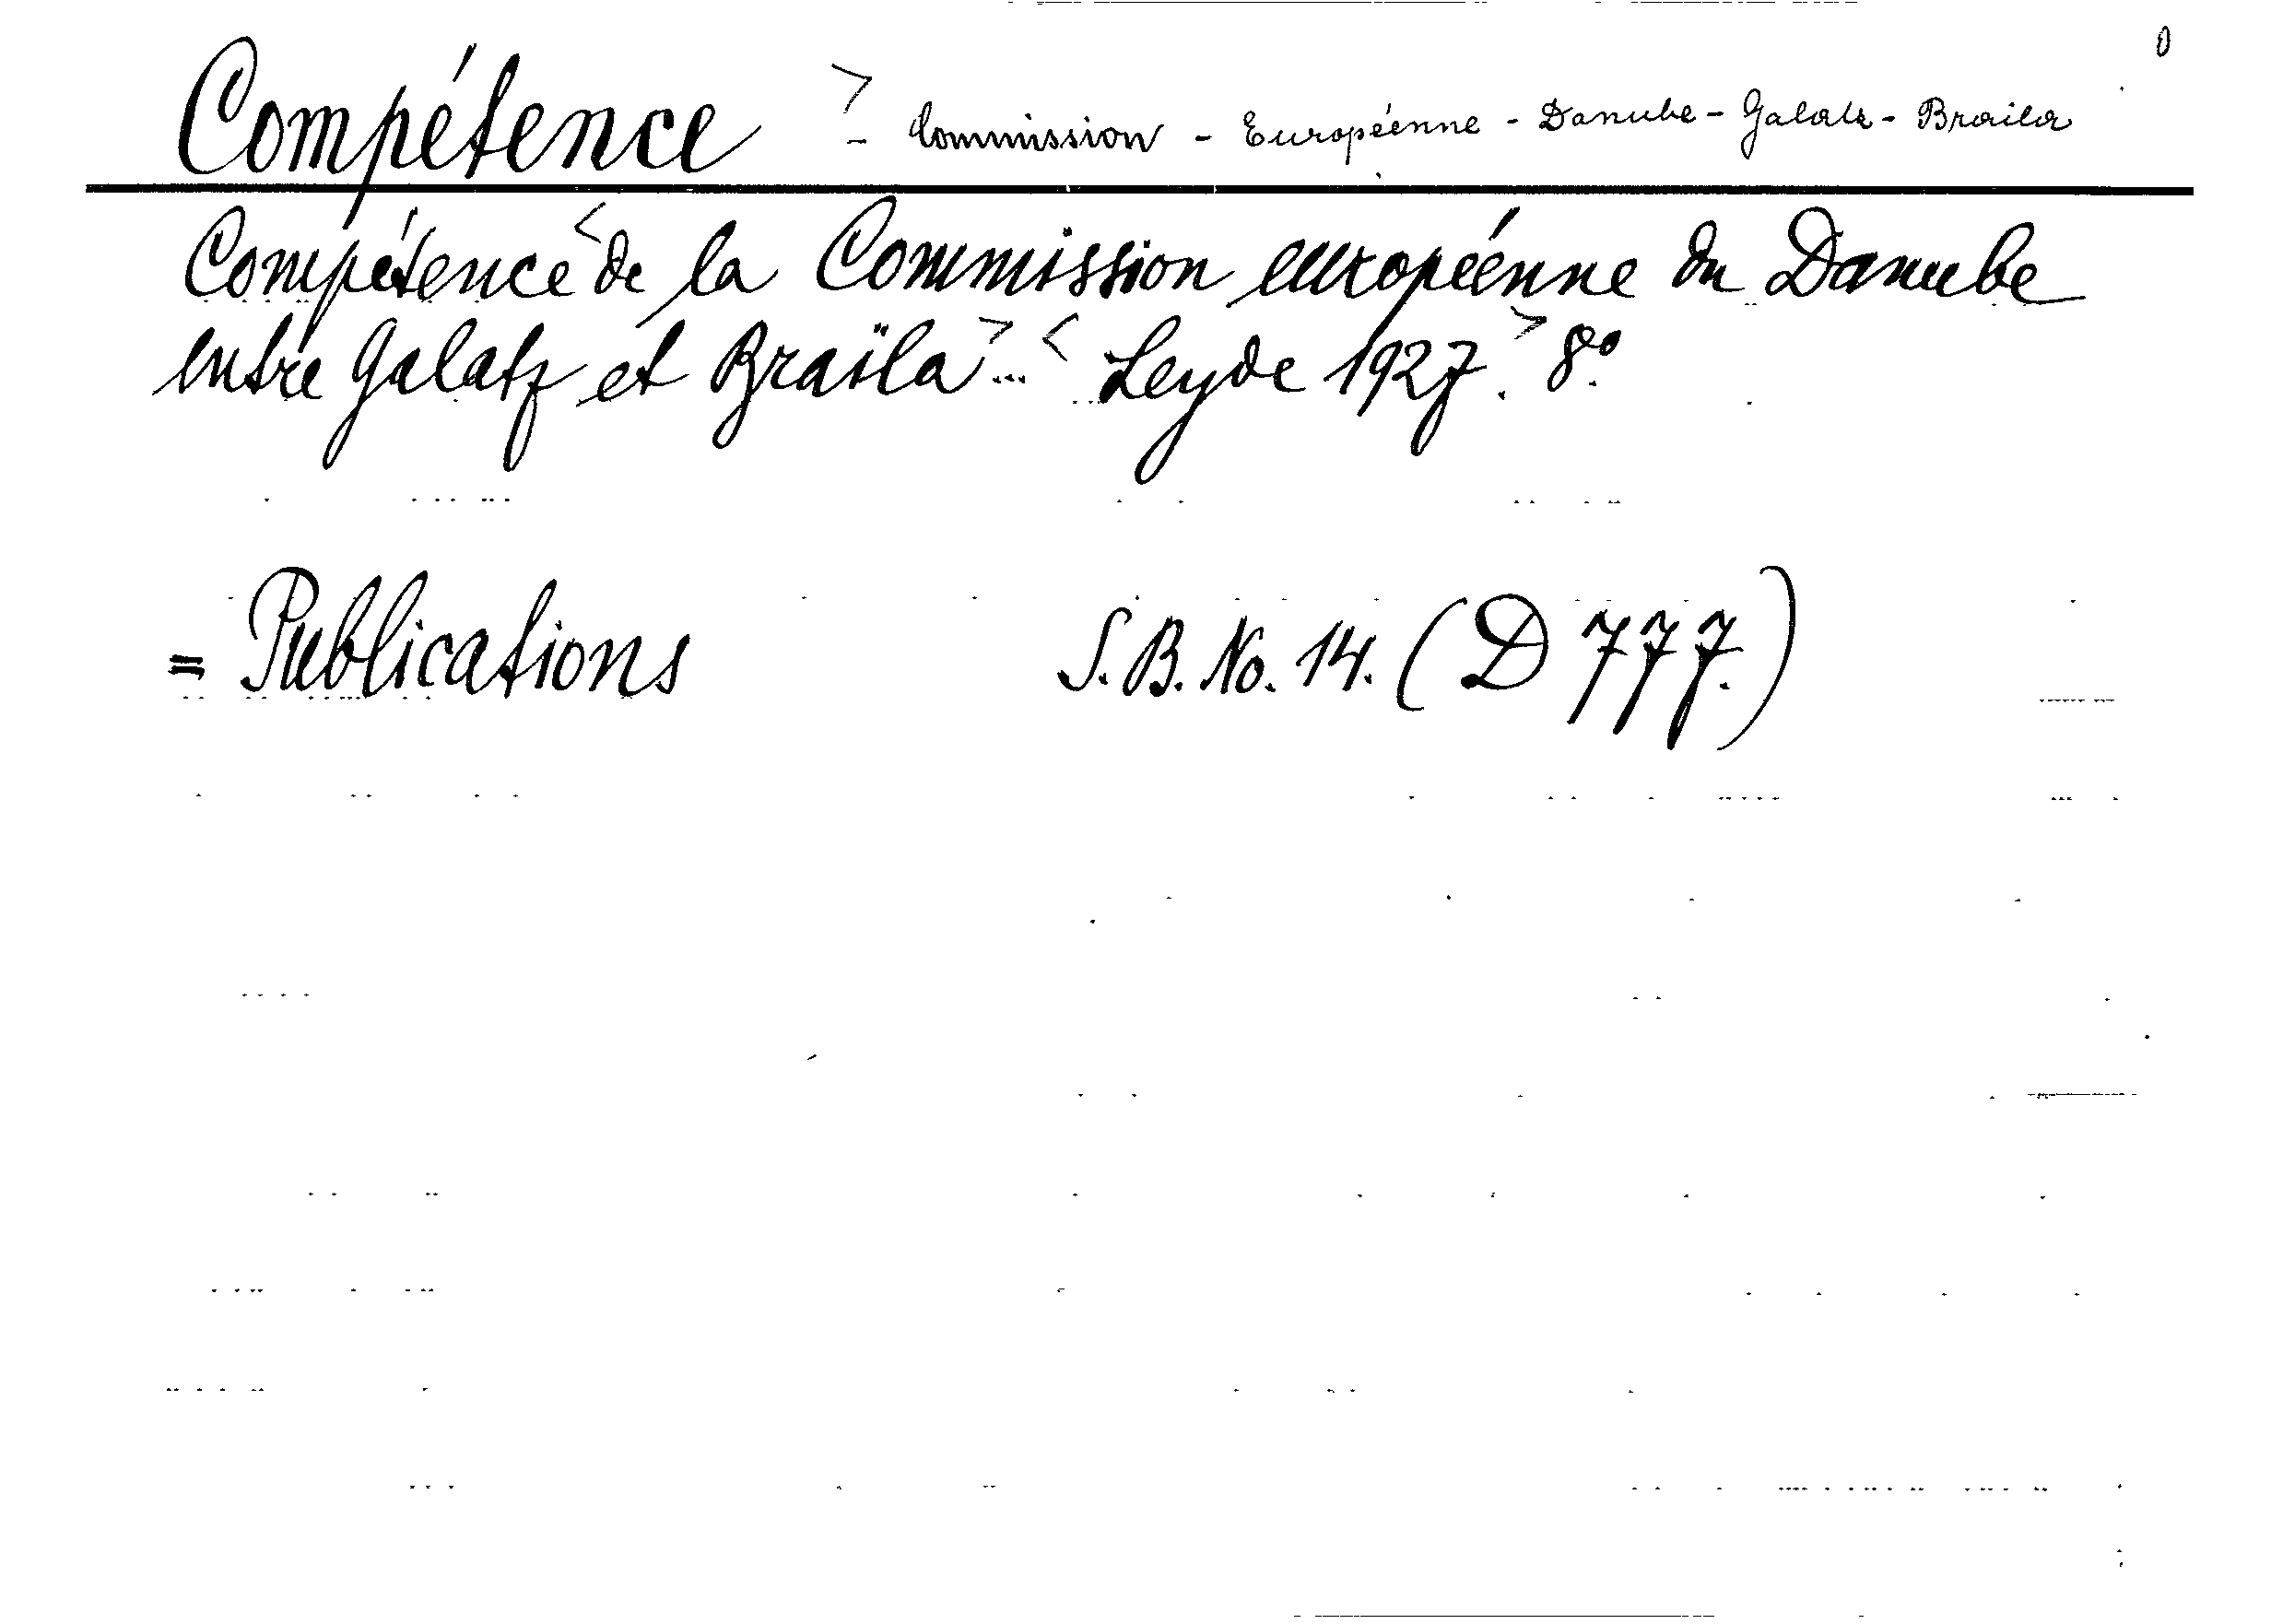 0
Compétence > - Commission - Européenne - Danube - Galatz - Braila
Compétence < de la Commission européenne du Danube
entre Galatz et Braïla > ... < Leyde 1927. > 8º.
= Publications S. B. No. 14. (D 777.)